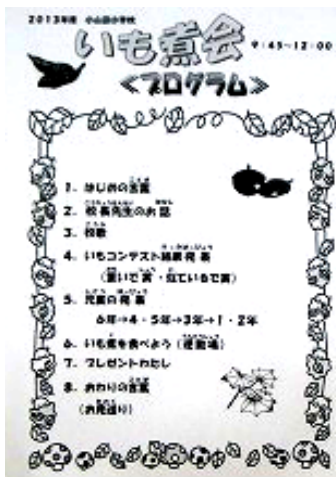 2013年度 小山田小学校
いも煮会 9:45~12:00
≪プログラム≫
1. はじめの言葉
2. 校長先生のお話
3. 校歌
4. いもコンテスト結果発表
(重いで賞・似ているで賞)
5. 児童の発表
6年→4・5年→3年→1・2年
6. いも煮を食べよう(運動場)
7. プレゼントわたし
8. おわりの言葉
(お見送り)